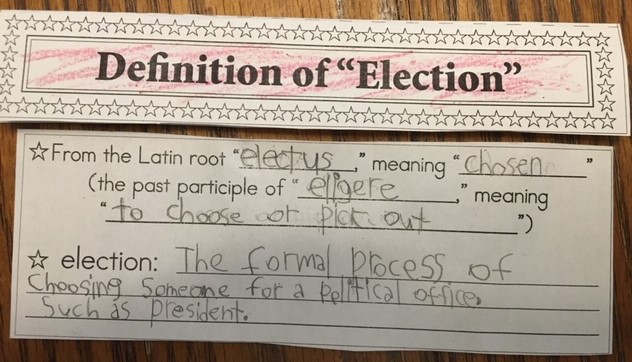 Definition of "Election"
☆From the Latin root "electus," meaning "chosen"
(the past participle of "eligere," meaning
"to choose or pick out")
☆ election: The formal process of
Choosing Someone for a political office,
Such as president.